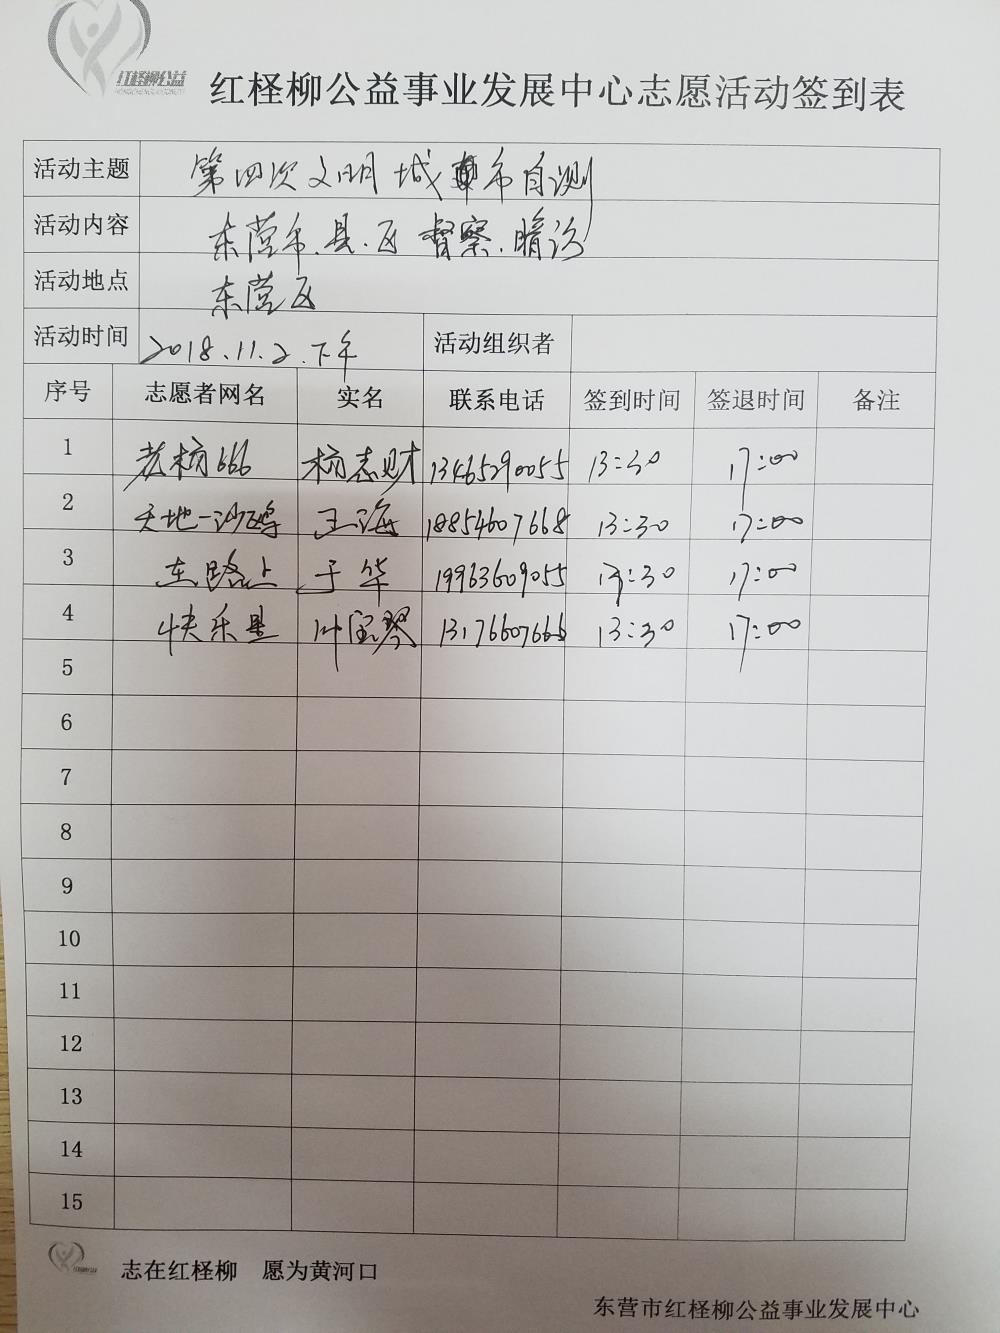 红柽柳公益
红柽柳公益事业发展中心志愿活动签到表
活动主题 第四次文明城市自测
活动内容 东营市、县、区督察、暗访
活动地点 东营区
活动时间 2018.11.2.下午 活动组织者
序号 志愿者网名 实名 联系电话 签到时间 签退时间 备注
1 老杨666 杨志财 13465290055 13:30 17:00
2 天地一沙鸥 王海 18854607668 13:30 17:00
3 在路上 于华 19963609055 13:30 17:00
4 快乐是 叶宝琴 13176607666 13:30 17:00
5
6
7
8
9
10
11
12
13
14
15
志在红柽柳 愿为黄河口
东营市红柽柳公益事业发展中心